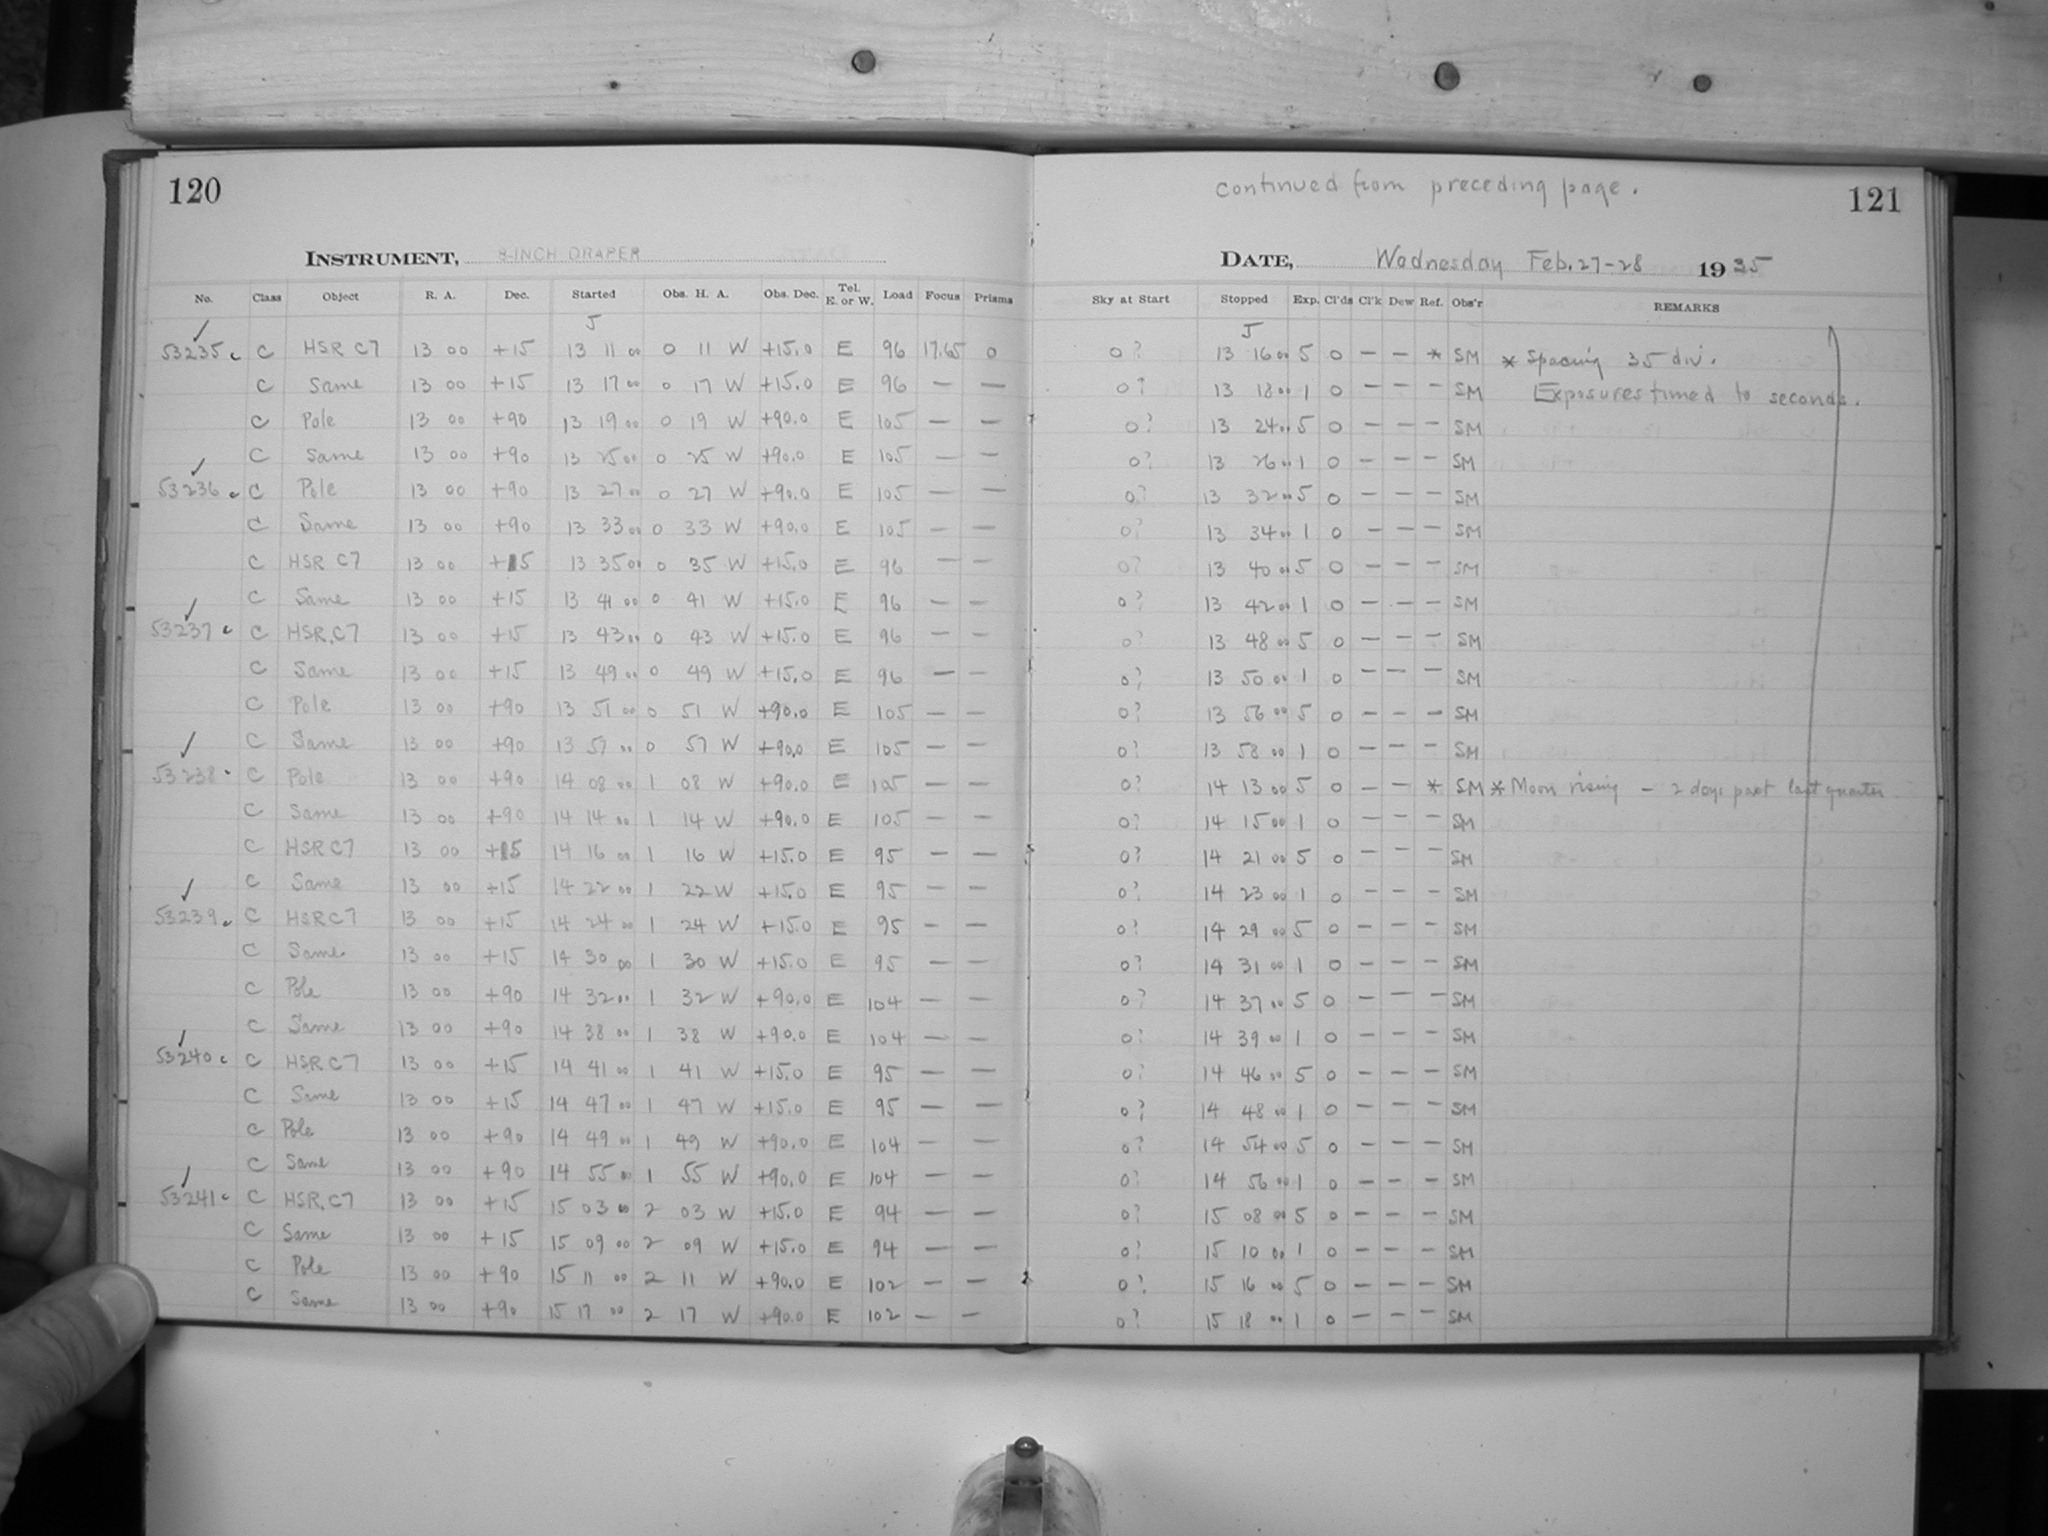 120
continued from preceding page.
121
INSTRUMENT, 8-INCH DRAPER
DATE, Wednesday Feb. 27-28 1935
No. Class Object R. A. Dec. Started Obs. H. A. Obs. Dec. Tel. E. or W. Load Focus Prisms Sky at Start Stopped Exp. Cl'ds Cl'k Dew Ref. Obs'r REMARKS
J J
53235 c C HSR C7 13 00 +15 13 11 00 0 11 W +15.0 E 96 17.65 0 0? 13 16 00 5 0 — — * SM * Spacing 35 div.
C Same 13 00 +15 13 17 00 0 17 W +15.0 E 96 — — 0? 13 18 00 1 0 — — — SM Exposures timed to seconds.
C Pole 13 00 +90 13 19 00 0 19 W +90.0 E 105 — — 0? 13 24 00 5 0 — — — SM
C Same 13 00 +90 13 25 00 0 25 W +90.0 E 105 — — 0? 13 26 00 1 0 — — — SM
53236 c C Pole 13 00 +90 13 27 00 0 27 W +90.0 E 105 — — 0? 13 32 00 5 0 — — — SM
C Same 13 00 +90 13 33 00 0 33 W +90.0 E 105 — — 0? 13 34 00 1 0 — — — SM
C HSR C7 13 00 +15 13 35 00 0 35 W +15.0 E 96 — — 0? 13 40 00 5 0 — — — SM
C Same 13 00 +15 13 41 00 0 41 W +15.0 E 96 — — 0? 13 42 00 1 0 — — — SM
53237 c C HSR.C7 13 00 +15 13 43 00 0 43 W +15.0 E 96 — — 0? 13 48 00 5 0 — — — SM
C Same 13 00 +15 13 49 00 0 49 W +15.0 E 96 — — 0? 13 50 00 1 0 — — — SM
C Pole 13 00 +90 13 51 00 0 51 W +90.0 E 105 — — 0? 13 56 00 5 0 — — — SM
C Same 13 00 +90 13 57 00 0 57 W +90.0 E 105 — — 0? 13 58 00 1 0 — — — SM
53238 C Pole 13 00 +90 14 08 00 1 08 W +90.0 E 105 — — 0? 14 13 00 5 0 — — * SM * Moon rising — 2 days past last quarter
C Same 13 00 +90 14 14 00 1 14 W +90.0 E 105 — — 0? 14 15 00 1 0 — — — SM
C HSR C7 13 00 +15 14 16 00 1 16 W +15.0 E 95 — — 0? 14 21 00 5 0 — — — SM
C Same 13 00 +15 14 22 00 1 22 W +15.0 E 95 — — 0? 14 23 00 1 0 — — — SM
53239 c C HSR C7 13 00 +15 14 24 00 1 24 W +15.0 E 95 — — 0? 14 29 00 5 0 — — — SM
C Same 13 00 +15 14 30 00 1 30 W +15.0 E 95 — — 0? 14 31 00 1 0 — — — SM
C Pole 13 00 +90 14 32 00 1 32 W +90.0 E 104 — — 0? 14 37 00 5 0 — — — SM
C Same 13 00 +90 14 38 00 1 38 W +90.0 E 104 — — 0? 14 39 00 1 0 — — — SM
53240 c C HSR C7 13 00 +15 14 41 00 1 41 W +15.0 E 95 — — 0? 14 46 00 5 0 — — — SM
C Same 13 00 +15 14 47 00 1 47 W +15.0 E 95 — — 0? 14 48 00 1 0 — — — SM
C Pole 13 00 +90 14 49 00 1 49 W +90.0 E 104 — — 0? 14 54 00 5 0 — — — SM
C Same 13 00 +90 14 55 00 1 55 W +90.0 E 104 — — 0? 14 56 00 1 0 — — — SM
53241 c C HSR.C7 13 00 +15 15 03 00 2 03 W +15.0 E 94 — — 0? 15 08 00 5 0 — — — SM
C Same 13 00 +15 15 09 00 2 09 W +15.0 E 94 — — 0? 15 10 00 1 0 — — — SM
C Pole 13 00 +90 15 11 00 2 11 W +90.0 E 102 — — 0? 15 16 00 5 0 — — — SM
C Same 13 00 +90 15 17 00 2 17 W +90.0 E 102 — — 0? 15 18 00 1 0 — — — SM